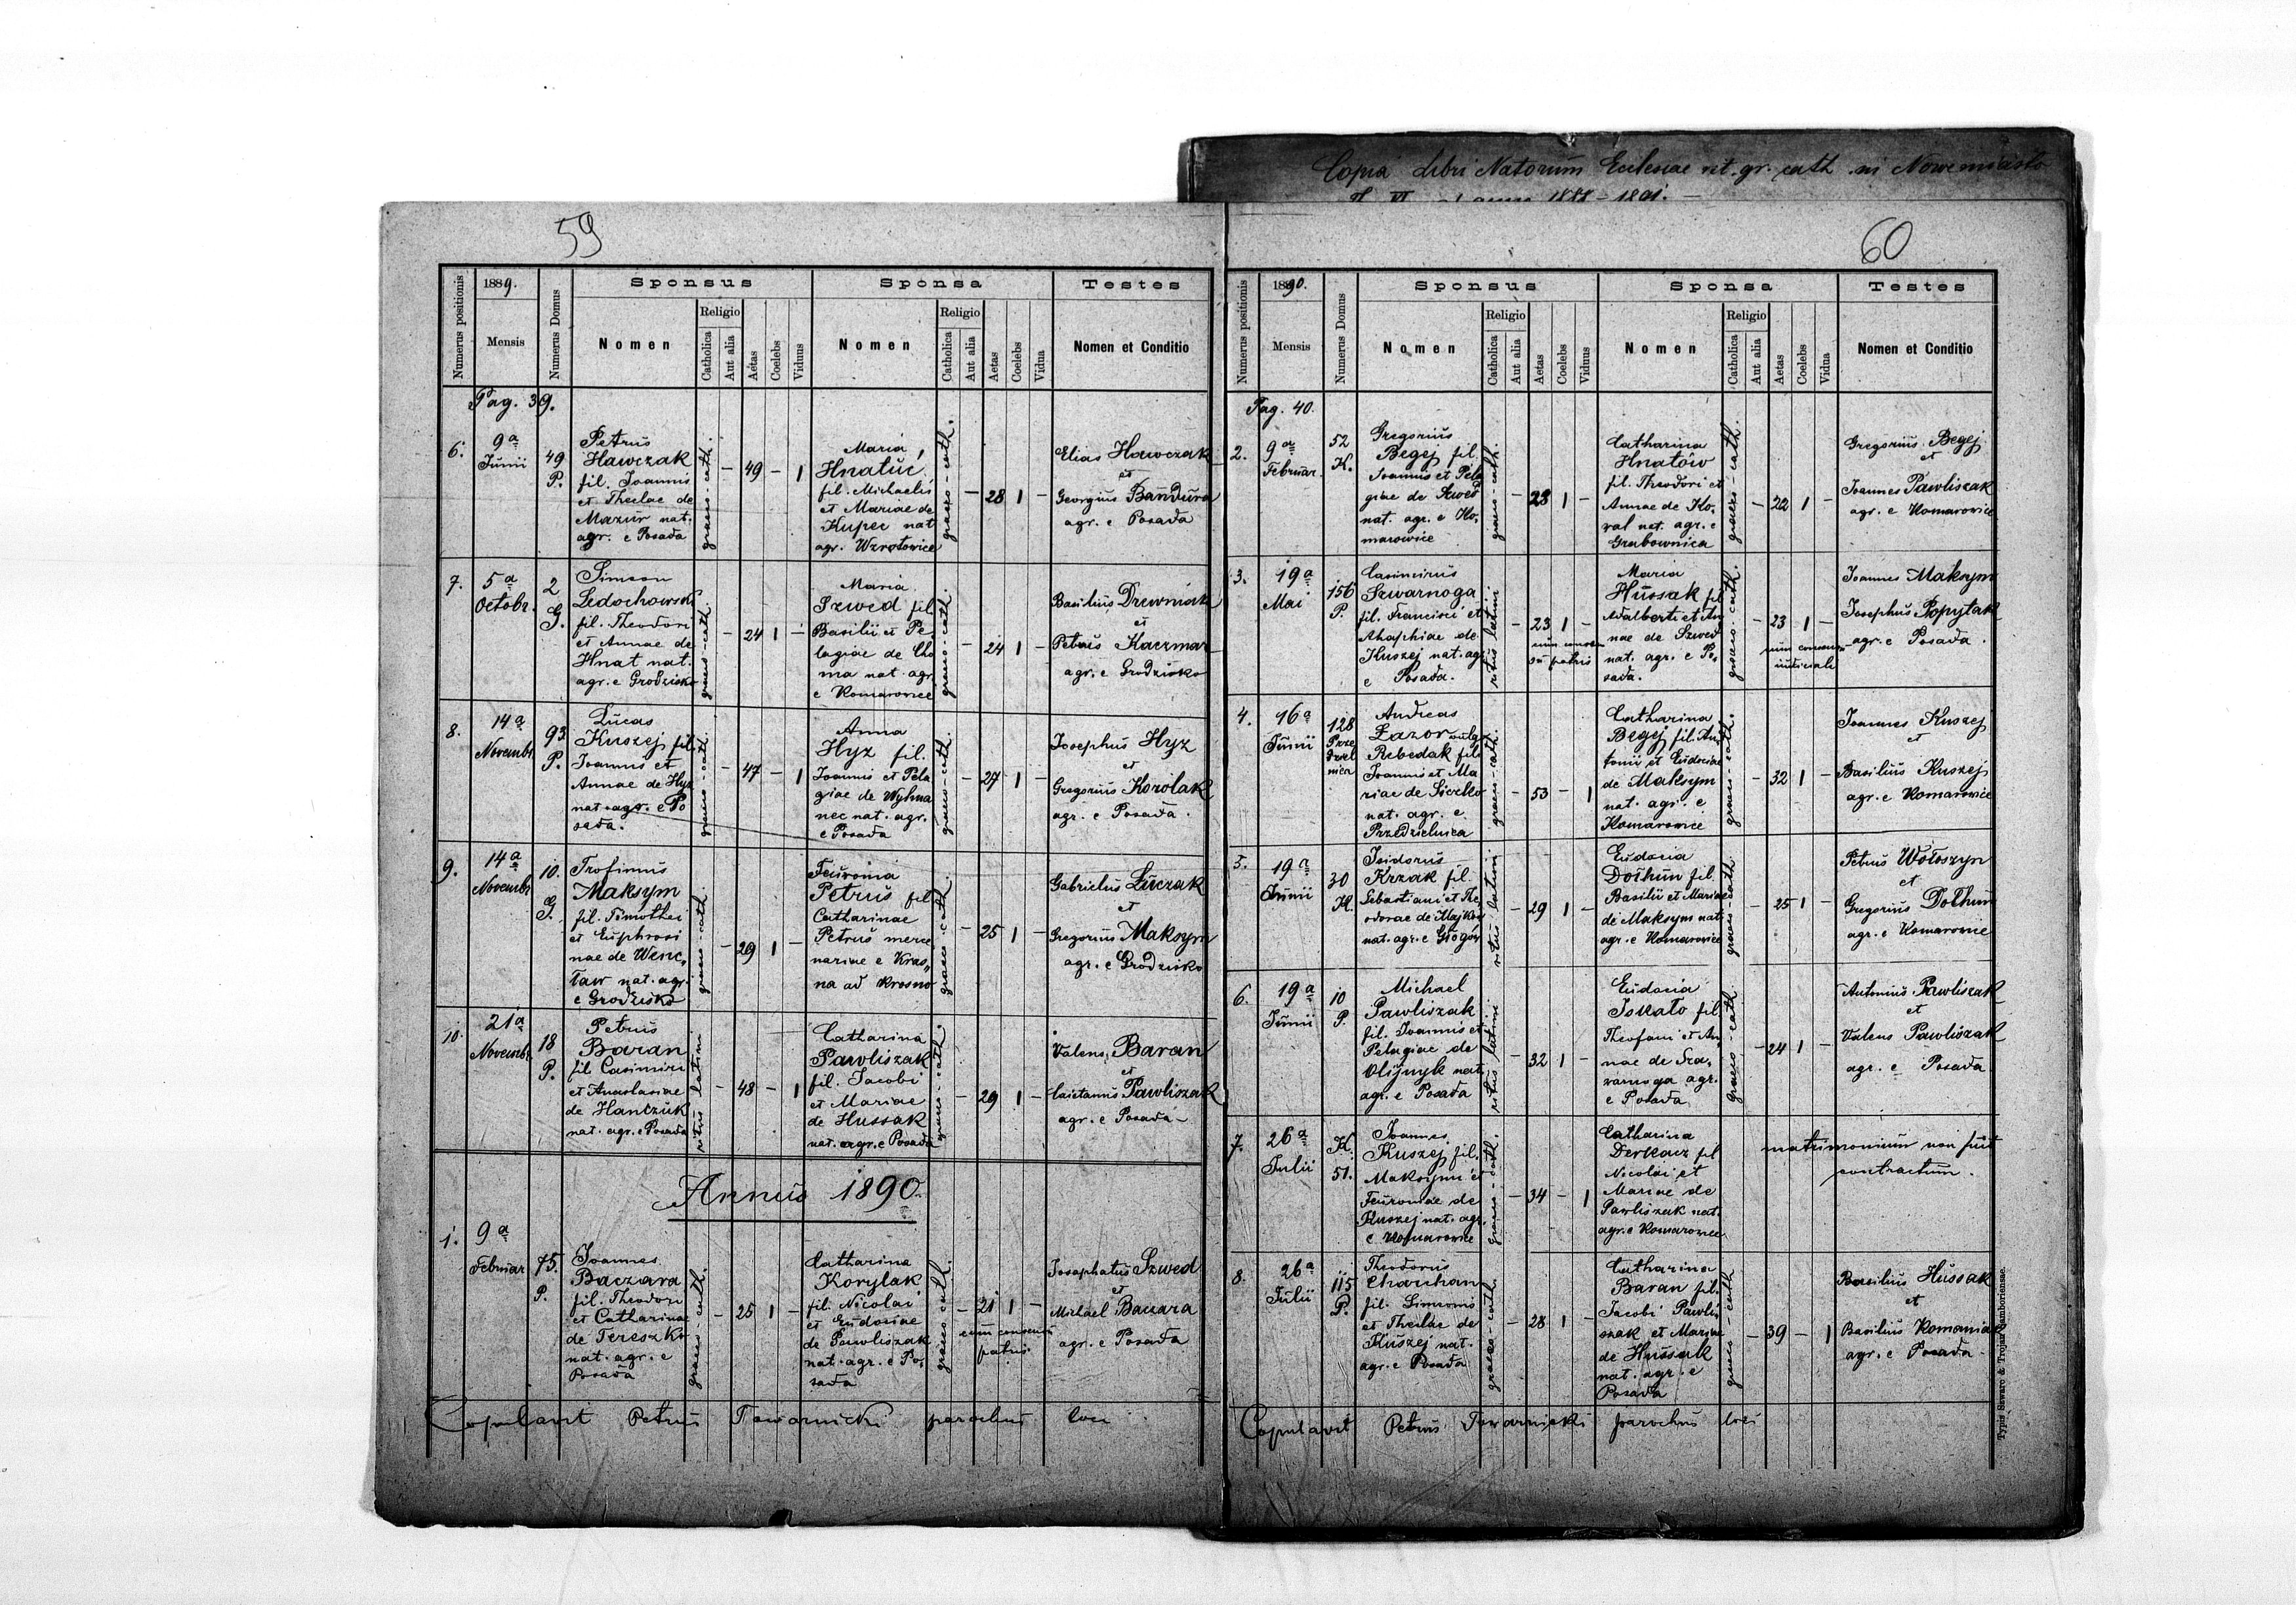 Copia Libri Natorum Ecclesiae rit. gr. cath. in Nowemiasto
1888 - 1891. -
59
Numerus positionis
1889.
Mensis
Numerus Domus
Sponsus
Nomen
Religio
Catholica
Aut alia
Aetas
Coelebs
Viduus
Sponsa
Nomen
Religio
Catholica
Aut alia
Aetas
Coelebs
Vidua
Testes
Nomen et Conditio
Pag. 39.
6.
9a
Junii
49
P.
Petrus
Hawczak
fil. Joannis
et Theclae de
Mazur nat.
agr. e Posada
graeco-cath.
- 49 - 1
Maria
Hnatuc
fil. Michaelis
et Mariae de
Kupec nat
agr. Wzrotowice
graeco-cath.
- 28 1 -
Elias Hawczak
et
Georgius Bandura
agr. e Posada
7.
5a
Octobr.
2
G.
Simeon
Ledochowski
fil. Theodori
et Annae de
Hnat nat.
agr. e Grodzisko
graeco-cath.
- 24 1 -
Maria
Szwed fil
Basilii et Pe-
lagiae de Cho
ma nat agr
e Komarowice
graeco-cath.
- 24 1 -
Basilius Drewniak
et
Petrus Kaczmar
agr. e Grodzisko
8.
14a
Novembr
93
P.
Lucas
Kuszej fil.
Joannis et
Annae de Hyz
nat. agr. e Po
sada.
graeco-cath.
- 47 - 1
Anna
Hyz fil.
Joannis et Pela
giae de Wyhna
nec nat. agr.
e Posada
graeco-cath.
- 27 1 -
Josephus Hyz
et
Gregorius Korolak
agr. e Posada.
9.
14a
Novembr
10.
G.
Trofimus
Maksym
fil. Timothei
et Euphrosi
nae de Wenc„
ław nat. agr.
e Grodzisko
graeco-cath.
- 29 1 -
Feuronia
Petrus fil
Catharinae
Petrus merce
nariae e Kras„
na ad Krosno
graeco-cath.
- 25 1 -
Gabrielus Łuczak
et
Gregorius Maksym
agr. e Grodzisko
10.
21a
Novembr
18
P.
Petrus
Baran
fil Casimiri
et Anastasiae
de Hanczuk
nat. agr. e Posada
ritus latini
- 48 - 1
Catharina
Pawliszak
fil. Jacobi
et Mariae
de Hussak
nat. agr. e Posada
graeco-cath.
- 29 1 -
Valens Baran
et
Caietanus Pawliszak
agr. e Posada
Annus 1890.
1.
9a
Februar
75.
P.
Joannes
Baczara
fil. Theodori
et Catharinae
de Tereszko
nat. agr. e
Posada
graeco-cath.
- 25 1 -
Catharina
Korylak
fil. Nicolai
et Eudociae
de Pawliszak
nat. agr. e Po„
sada
graeco-cath.
- 21 1 -
cum consensu
patris.
Josaphatus Szwed
et
Michael Baczara
agr. e Posada
Copulavit Petrus Tawarnicki parochus loci
60
Numerus positionis
1890.
Mensis
Numerus Domus
Sponsus
Nomen
Religio
Catholica
Aut alia
Aetas
Coelebs
Viduus
Sponsa
Nomen
Religio
Catholica
Aut alia
Aetas
Coelebs
Vidua
Testes
Nomen et Conditio
Pag. 40.
2.
9a
Februar.
52
K.
Gregorius
Begej fil.
Joannis et Pela
giae de Szwed
nat. agr. e Ko„
marowice
graeco-cath.
- 23 1 -
Catharina
Hnatów
fil. Theodori et
Annae de Ko„
wal nat. agr. e
Grabownica
graeco-cath.
- 22 1 -
Gregorius Begej
et
Joannes Pawliszak
agr. e Komarowice
3.
19a
Mai
156
P.
Casimirus
Szwarnoga
fil. Francisci et
Ahaphiae de
Kuszej nat. agr
e Posada.
ritus latini
- 23 1 -
cum consen
su patris
Maria
Hussak fil
Adalberti et An
nae de Szwed
nat. agr. e Po„
sada.
graeco-cath.
- 23 1 -
cum consensu
iudiciale
Joannes Maksym
Josephus Popytak
agr. e Posada.
4.
16a
Junii
128
Prze
dziel
nica
Andreas
Łazor vulg
Rebedak fil.
Joannis et Ma
riae de Siczko
nat. agr. e
Przedzielnica
graeco-cath.
- 53 - 1
Catharina
Begej fil. An
tonii et Eudociae
de Maksym
nat. agr. e
Komarowice
graeco-cath.
- 32 1 -
Joannes Kuszej
et
Basilius Kuszej
agr. e Komarowice
5.
19a
Junii
30
K.
Isidorus
Krzak fil.
Sebastiani et The
odorae de Majkow
nat. agr. e Głogów
ritus latini
- 29 1 -
Eudocia
Dołhun fil.
Basilii et Mariae
de Maksym nat
agr. e Komarowice
graeco-cath
- 25 1 -
Petrus Wołoszyn
et
Gregorius Dołhun
agr. e Komarowice
6.
19a
Junii
10
P.
Michael
Pawliszak
fil. Joannis et
Pelagiae de
Olijnyk nat
agr. e Posada
ritus latini
- 32 1 -
Eudocia
Iskało fil
Theofani et An„
nae de Sza„
warnoga agr.
e Posada
graeco-cath.
- 24 1 -
Antonius Pawliszak
et
Valens Pawliszak
agr. e Posada
7.
26a
Julii
K.
51.
Joannes
Kuszej fil.
Maksymi et
Feuroniae de
Kuszej nat. agr.
e Komarowice
graeco-cath.
- 34 - 1
Catharina
Derkacz fil
Nicolai et
Mariae de
Pawliszak nat.
agr. e Komarowice
matrimonium non fuit
contractum.
8.
26a
Julii
115
P.
Theodorus
Charchan
fil. Simeonis
et Theclae de
Kuszej nat.
agr. e Posada
graeco-cath.
- 28 1 -
Catharina
Baran fil.
Jacobi Pawli
szak et Mariae
de Hussak
nat. agr. e
Posada
graeco-cath
- 39 - 1
Basilius Hussak
et
Basilius Romaniak
agr. e Posada
Copulavit Petrus Tawarnicki parochus loci